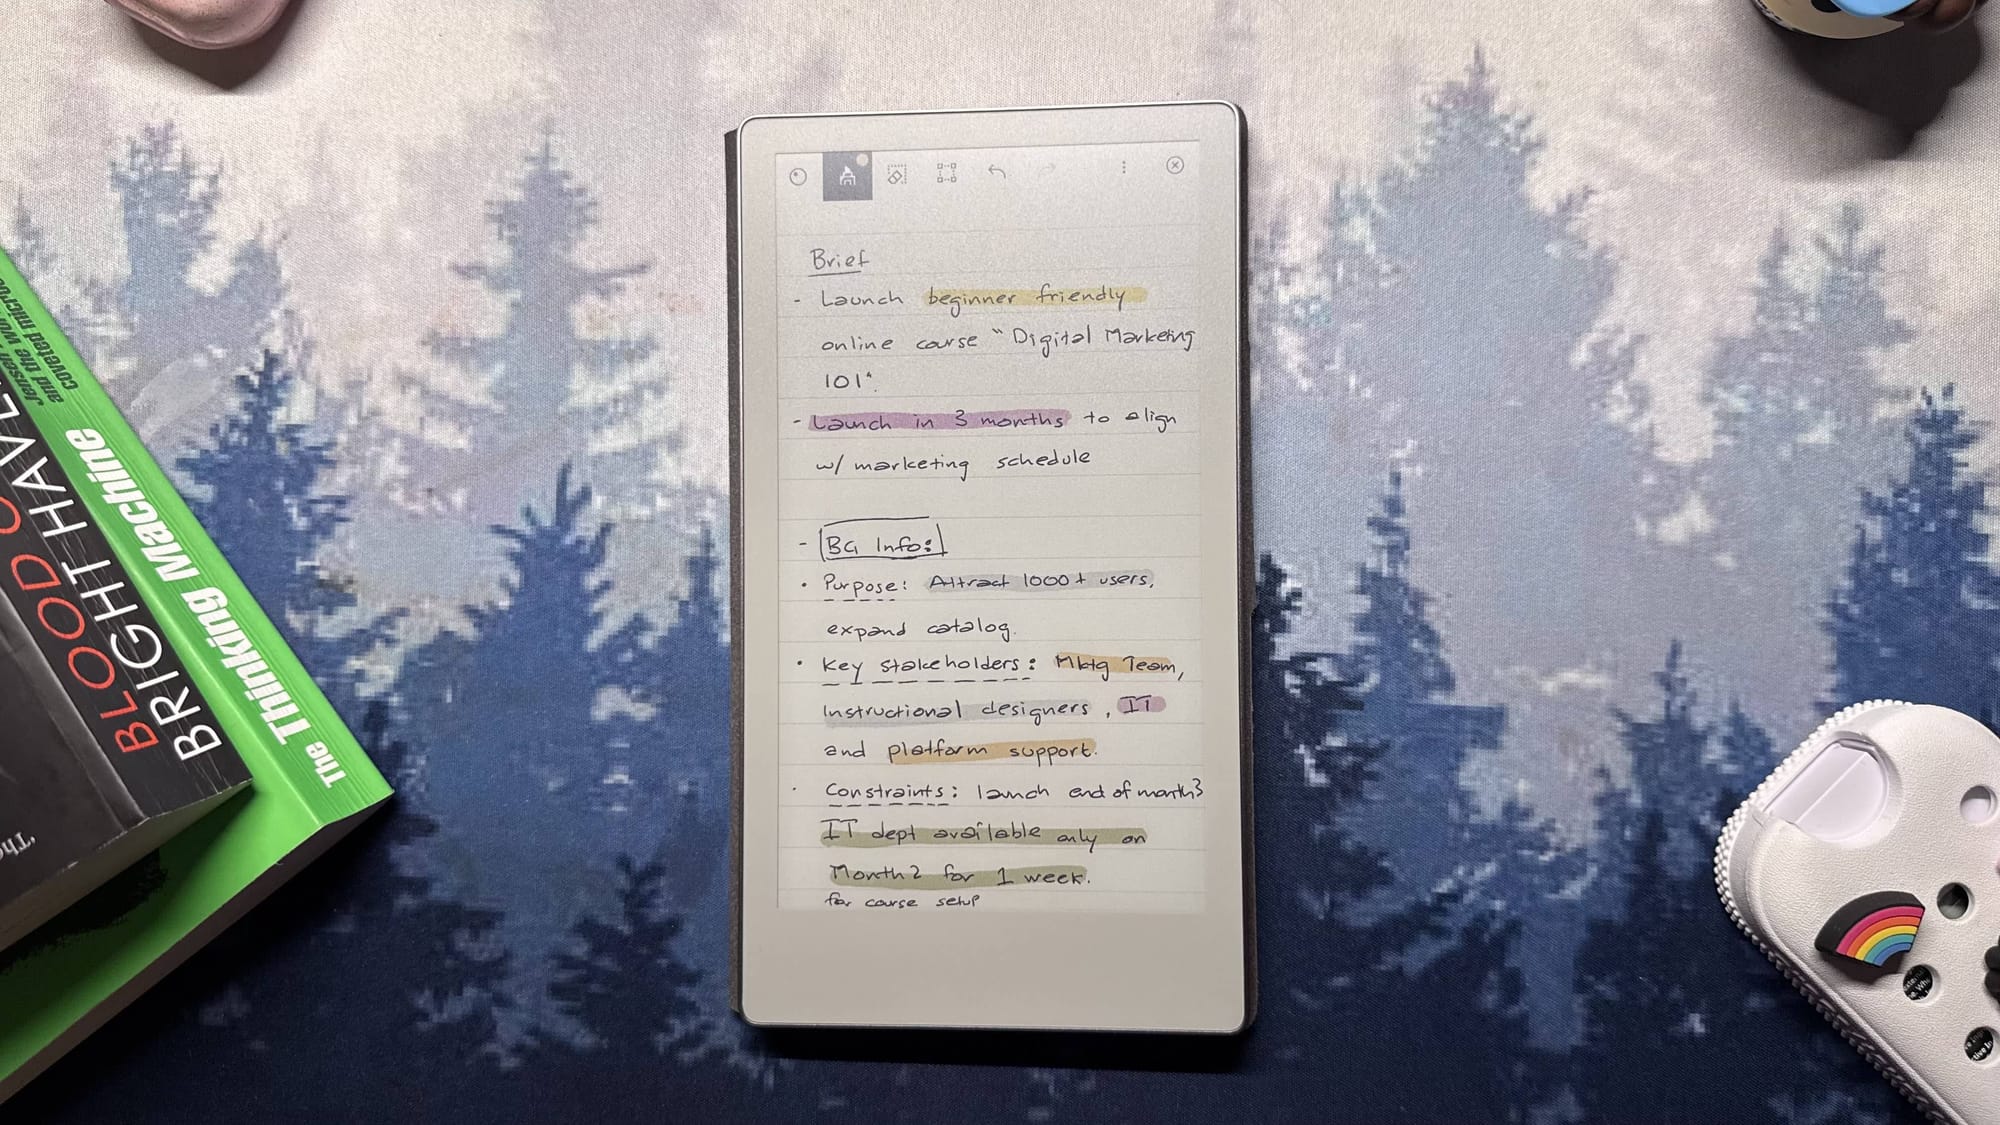 Brief
- Launch beginner friendly
online course "Digital Marketing
101".
- Launch in 3 months to align
w/ marketing schedule
- BG Info:
• Purpose: Attract 1000+ users,
expand catalog.
• Key stakeholders: Mktg Team,
Instructional designers, IT
and platform support.
• Constraints: launch end of month3
IT dept available only on
Month2 for 1 week.
for course setup
The Thinking Machine
Jensen
and the
coveted
BLOOD
BRIGHT HAVE